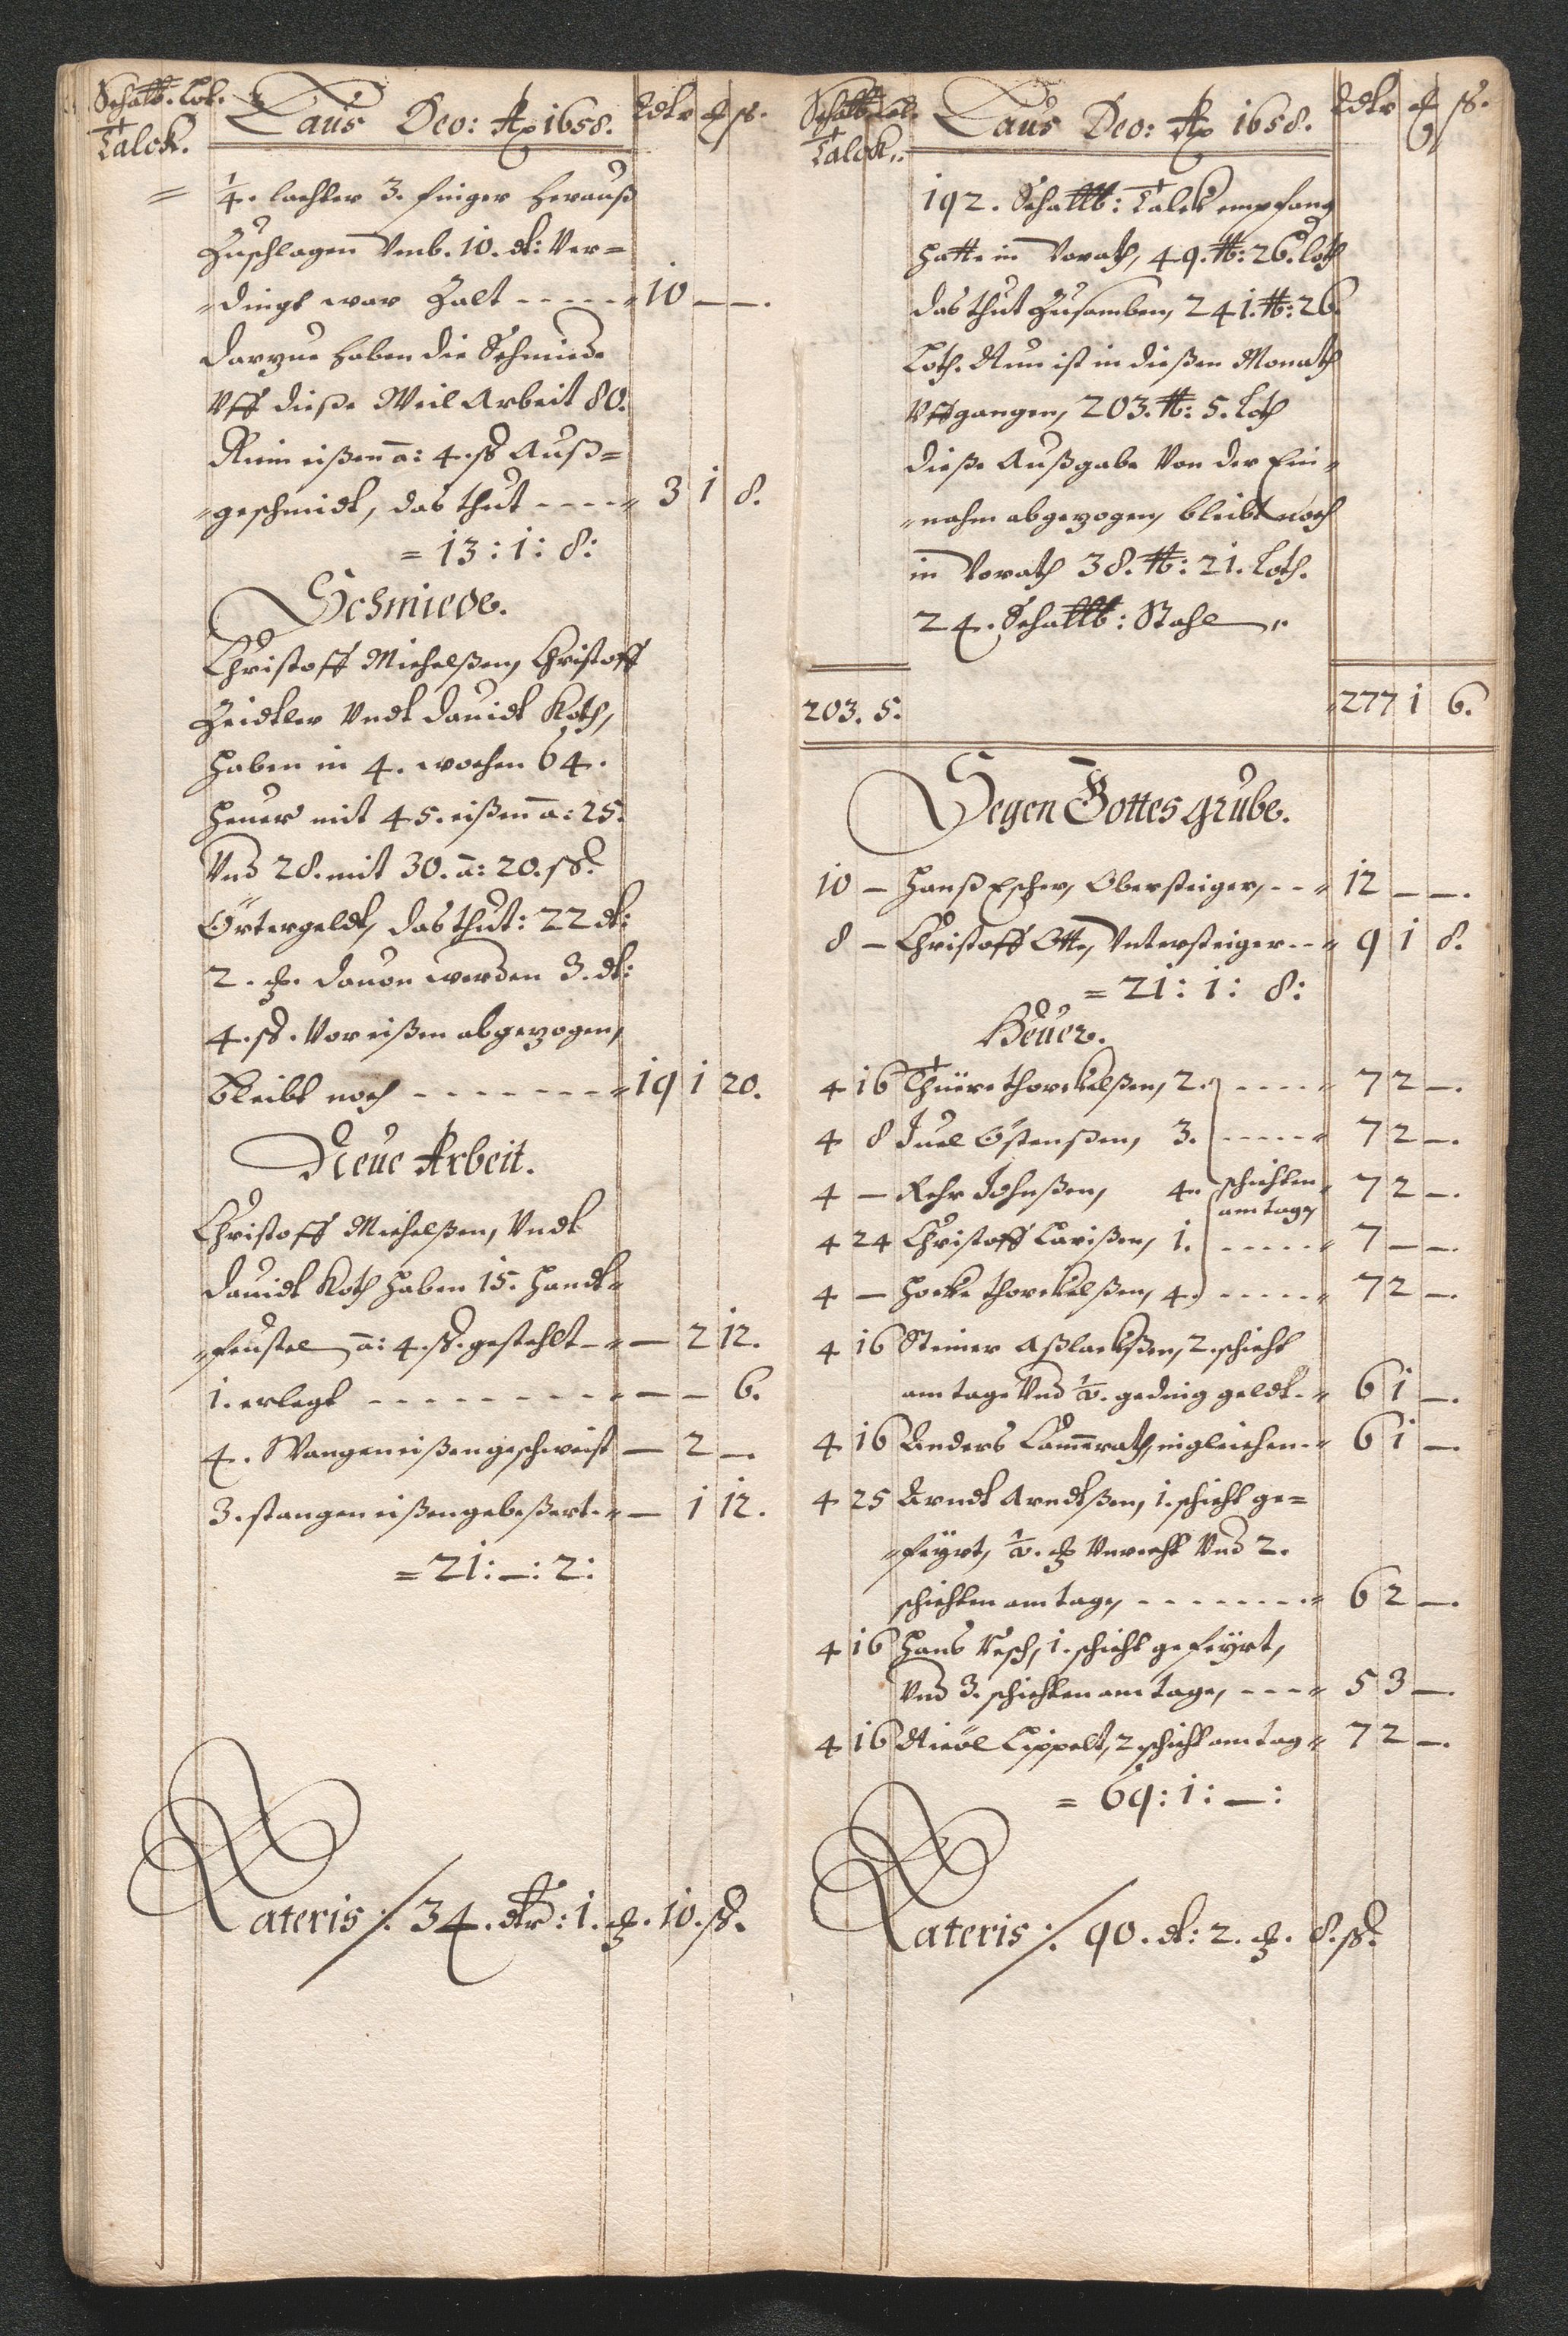 Schalt. lot.
Talck.
Laus Deo: Ao 1658.
Rdlr ß.
= 1/4. lachter 3. finger herauß
Zuschlagen Vmb. 10. dl: Ver=
=dingt war Zalt ----- 10 — —.
Darzue haben die Schmiede
Vff diese Weil Arbeit 80.
eißen a: 4. ß Auß=
=geschmidt, das thut ---- 3 1 8.
= 13 : 1 : 8 :
Schmiede.
Christoff Michelßen, Christoff
Zeidler Vndt Dauidt Koth,
haben in 4. wochen 64.
heuer mit 45. eißen a: 25.
Vnd 28. mit 30. a: 20. ß.
Örtergeldt, das thut: 22 dl:
2. dauon werden 3. dl:
4. ß. Vor eißen abgezogen,
bleibt noch ------- 19 1 20.
Neue Arbeit.
Christoff Michelßen, Vndt
Dauidt Koth haben 15. handt=
=feustel a: 4. ß. gestehlt - — 2 12.
1. erlegt -------- — — 6.
4. Wangeneißen geschweist — 2 —.
3. stangen eißen gebeßert. — 1 12.
= 21 : — : 2 :
Lateris ./. 34. dlr : 1. 10. ß.
Schalt. lot.
Talck.
Laus Deo: Ao 1658.
Rdlr ß.
192. Schalttb: Talck empfang
hatt in Vorath, 49. tb: 26. loth
das thut Zusamben, 241. tb: 26.
Loth. Nun ist in dießen Monath
Vffgangen, 203. tb: 5. Loth
dieße Außgabe Von der Ein=
=nahm abgezogen, bleibt noch
in Vorath 38. tb: 21. Loth.
24. Schalttb: Stahl
203. 5. 277 1 6.
Segen Gottes grube.
10 — Hanß Escher, Obersteiger, -- 12 — —.
8 — Christoff Otte, Vntersteiger -- 9 1 8.
= 21 : 1 : 8 :
Heuer.
4 16 Thüre thorckelßen, 2. ---- 7 2 —.
4 8 Juel Östenßen, 3. ----- 7 2 —.
4 — Rehr Johnßen, 4. schichten am tage, 7 2 —.
4 24 Christoff Larißen, 1. ----- 7 — —.
4 — thorckelßen, 4. ----- 7 2 —.
4 16 Steiner Aßlackßen, 2. schicht
am tage Vnd 1/2. geding geldt. 6 1 —.
4 16 Anders Cammerath, ingleichen 6 1 —.
4 25 Arndt Arndtßen, 1. schicht ge=
=feyrt, 1/2. Vnrecht Vnd 2.
schichten am tage, -------- 6 2 —.
4 16 Hans Resch, 1. schicht gefeyrt,
Vnd 3. schichten am tage, --- 5 3 —.
4 16 Lippelt, 2 schicht am tag 7 2 —.
= 69 : 1 : — :
Lateris ./. 90. dl: 2. 8. ß.